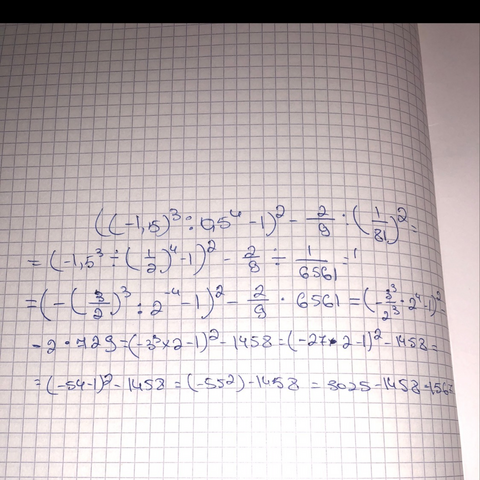 ((-1,5)³ : 0,5⁴ - 1)² - 2/9 : (1/81)² =
= (-1,5³ ÷ (1/2)⁴ - 1)² - 2/9 ÷ 1/6561 =
= (-(3/2)³ : 2⁻⁴ - 1)² - 2/9 · 6561 = (-3³/2³ · 2⁴ - 1)²
- 2 · 729 = (-3³ × 2 - 1)² - 1458 = (-27 · 2 - 1)² - 1458 =
= (-54 - 1)² - 1458 = (-55²) - 1458 = 3025 - 1458 =